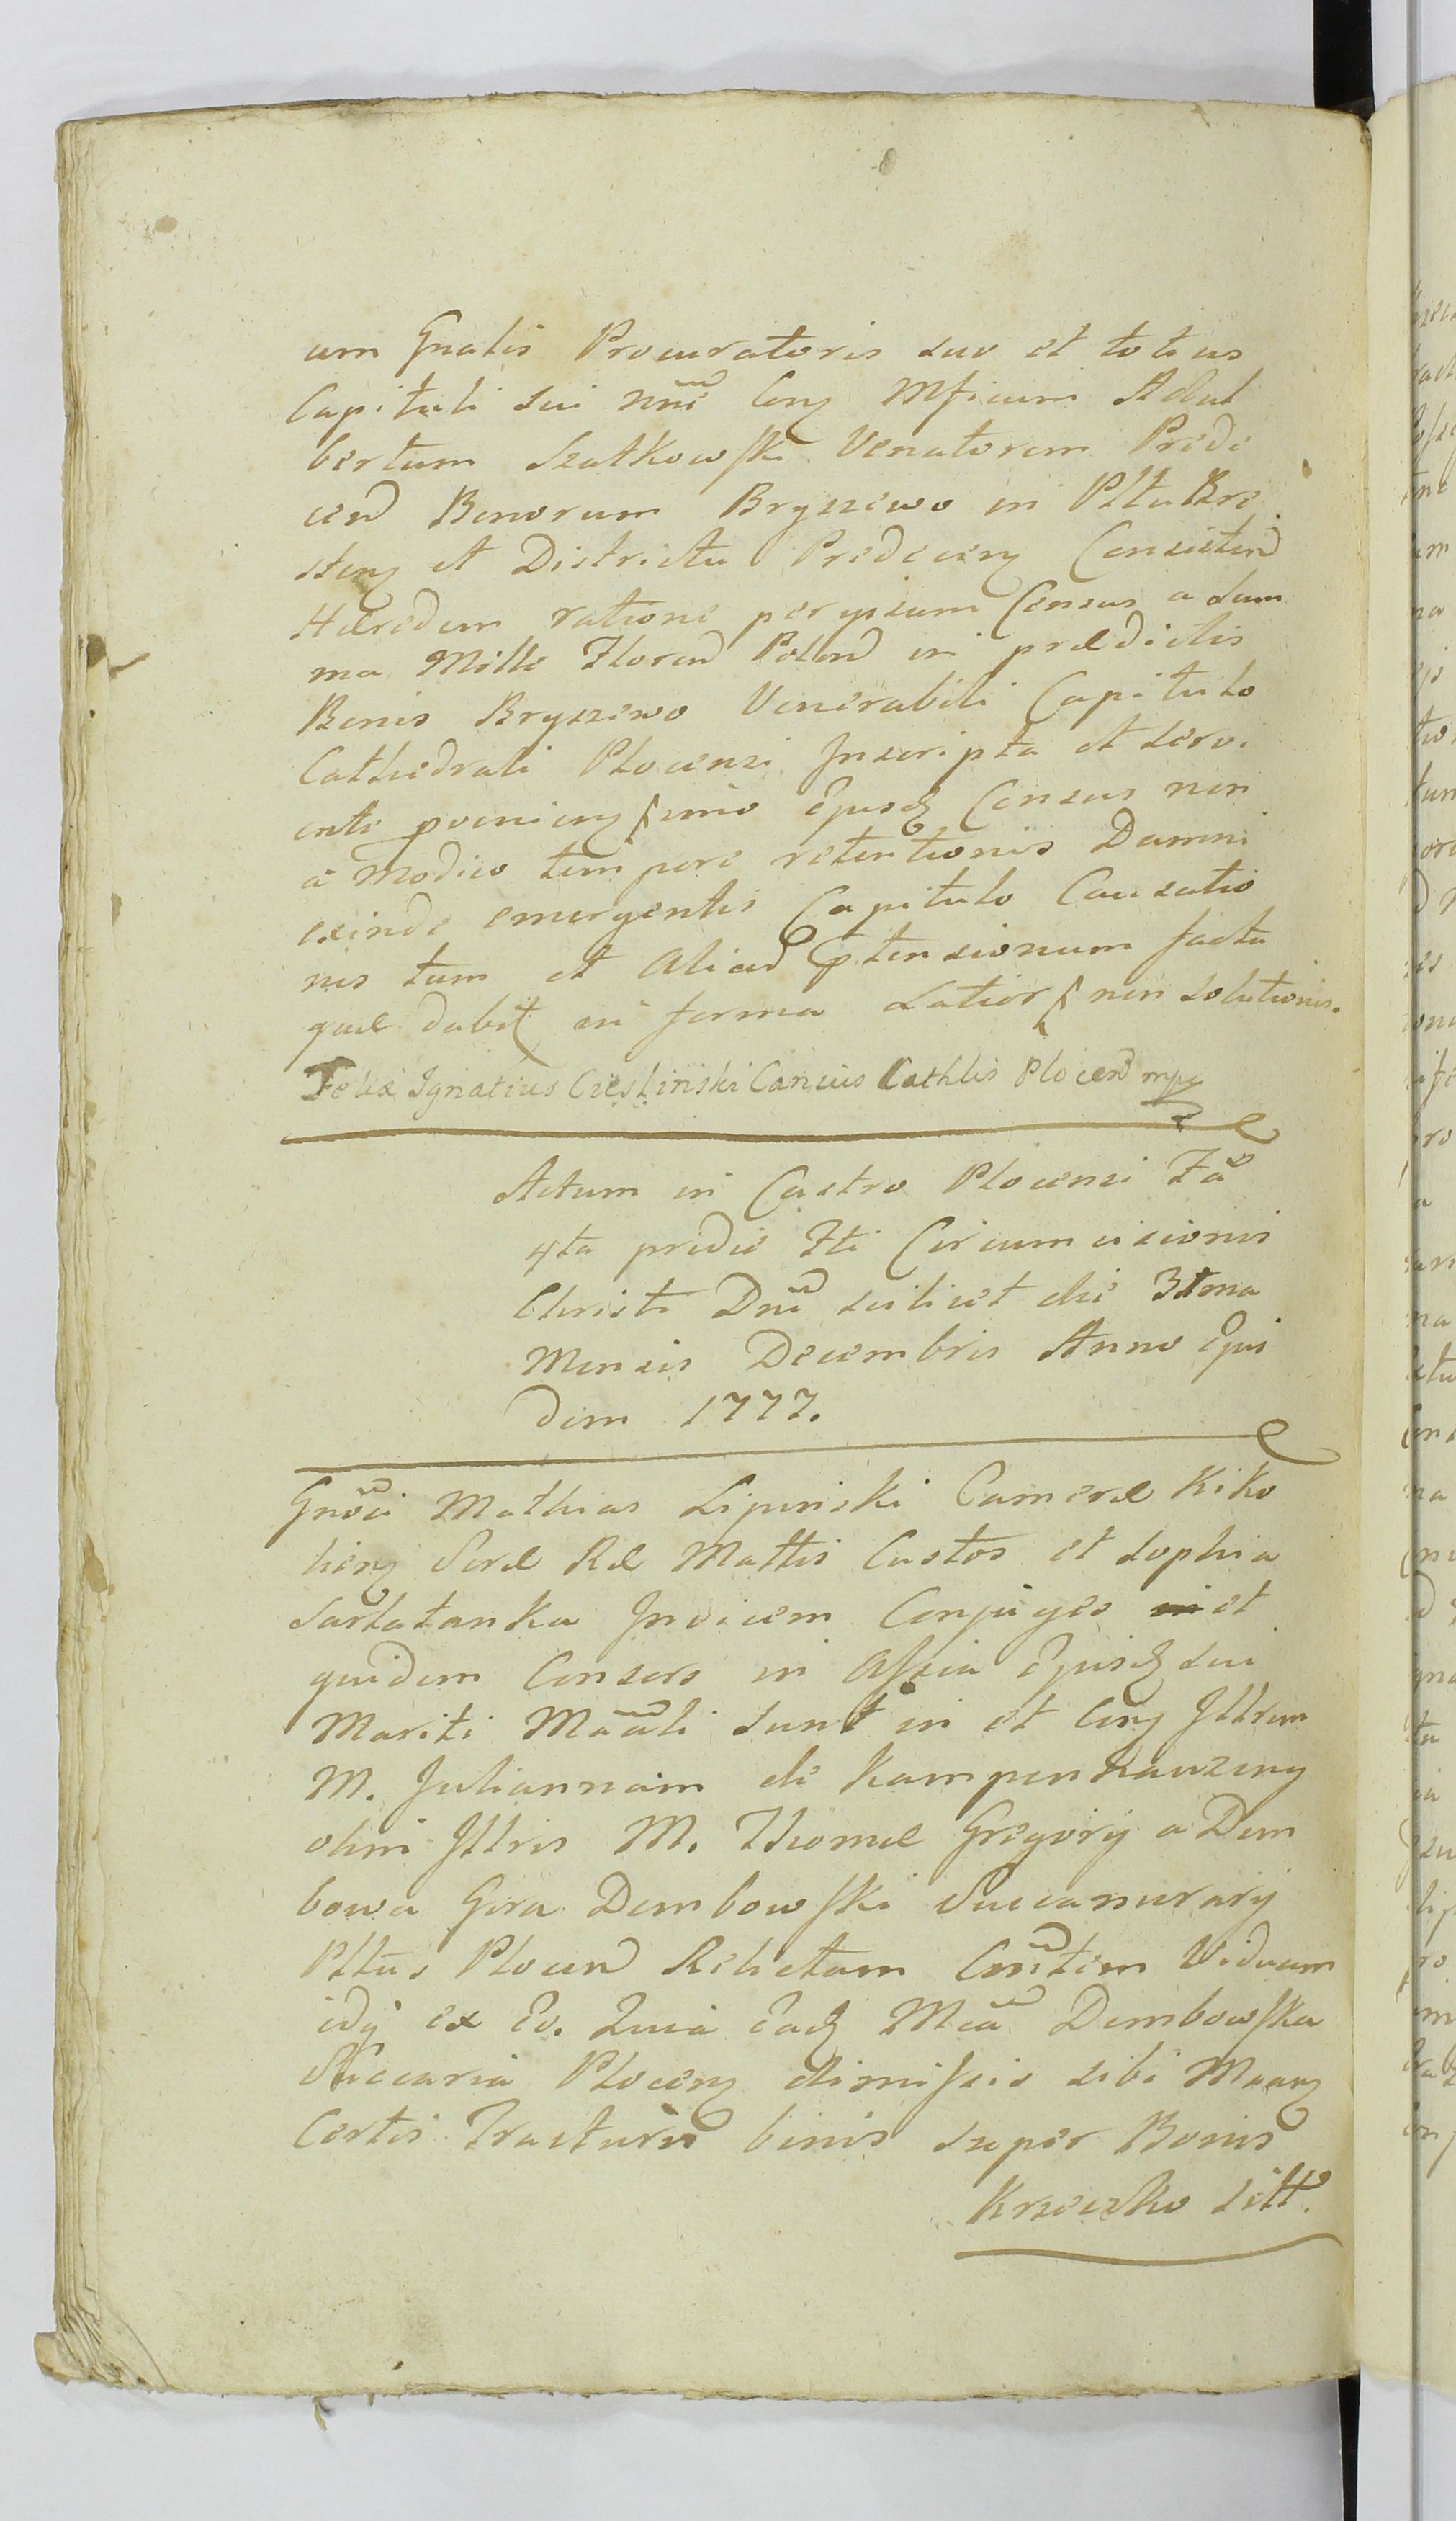 um Gnalis Procuratoris suo et totius
Capituli sui nne Cong Mficum Adal
bertum Szatkowski Venatorem Prede
cen Bonorum Bryszewo in Pltu Bre
sten et Districtu Predecen Consisten
Hæredem ratione per ipsum Census a Sum
ma Mille Floren Polon in prædictis
Bonis Bryszewo Venerabili Capitulo
Cathedrali Plocensi Inscripta et servi
enti provenien imo Ejusd Census non
à Modico tempore retentionis Damni
exinde emergentis Capitulo Causatio
nis tum et Aliar ptensionum factu
quæ dabit in forma Latior non Solutionis.
Felix Ignatius Cieslinski Cancius Cathlis Plocen mp
Actum in Castro Plocensi Fã
4ta pridie Fti Circumcisionis
Christi Dni scilicet die 31ma
Mensis Decembris Anno Ejus
dem 1777.
Gnosi Mathias Lipinski Cameræ Kiko
lien Seræ Ræ Mattis Custos et Sophia
Sarlatanka Invicem Conjuges et
quidem Consors in Assia Ejusd sui
Mariti Maali sunt in et Cong Illrem
M. Juliannam de Kampenhauzeny
olim Illris M. Thomæ Gregorij a Dem
bowa Gora Dembowski Succamerarij
Pltus Plocen Relictam Cnitem Viduam
idq ex eo. Quia Ead Mca Dembowska
Succaria Plocen dimissis sibi Maan
Certis Tracturis binis super Bonis
Krzeczko Sitt.